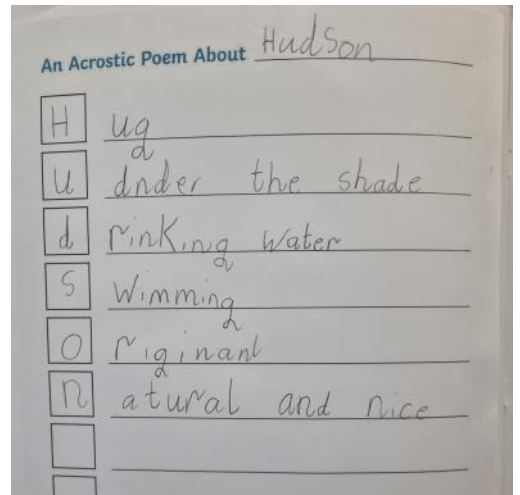 An Acrostic Poem About HudSon
H ug
u dnder the shade
d rinking water
S wimming
O riginanl
n atural and nice